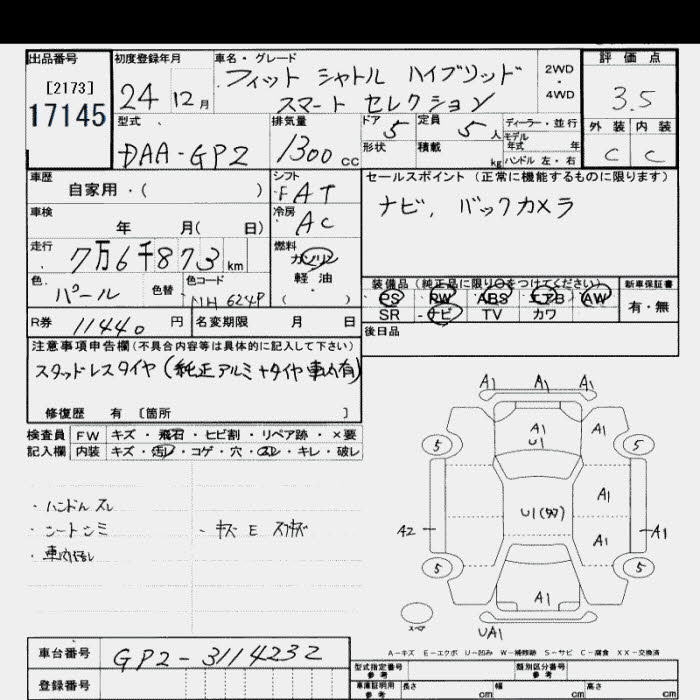 出品番号
[2173]
17145
初度登録年月
24 12月
車名・グレード
フィット シャトル ハイブリッド
スマート セレクション
2WD
・
4WD
評価点
3.5
外装 内装
C C
型式
DAA-GP2
排気量
1300 cc
ドア 5
定員 5 人
ディーラー・並行
モデル
年式 年
形状
積載 kg
ハンドル 左・右
車歴
自家用・( )
シフト
FAT
セールスポイント (正常に機能するものに限ります)
ナビ, バックカメラ
車検
年 月( 日)
冷房
AC
走行
7万6千873 km
燃料
ガソリン
軽油
( )
色
パール
色替
色コード
NH 624P
装備品 (純正品に限り○をつけてください)
PS PW ABS エアB AW
SR ナビ TV カワ
新車保証書
有・無
R券 11440 円
名変期限 月 日
後日品
注意事項申告欄(不具合内容等は具体的に記入して下さい)
スタッドレスタイヤ (純正アルミ+タイヤ車内有)
修復歴 有 〔箇所 〕
検査員 FW キズ・飛石・ヒビ割・リペア跡・×要
記入欄 内装 キズ・汚レ・コゲ・穴・スレ・キレ・破レ
・ハンドル スレ
・シートシミ
・キズ E スリキズ
A1 A1 A1
A1
U1
A1
5 5
A1
A2
A1
A1
5 5
A1
UA1
スペア
A-キズ E-エクボ U-凹み W-補修跡 S-サビ C-腐食 XX-交換済
車台番号 GP2-3114232
登録番号
型式指定番号
参考
類別区分番号
参考
車庫証明用
参考
長さ cm
幅 cm
高さ cm